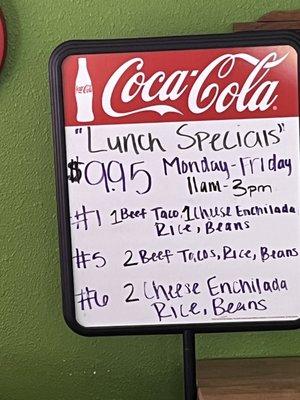 Coca-Cola
Coca-Cola
"Lunch Specials"
$9.95 Monday-Friday
11am-3pm
#1 1 Beef Taco, 1 Cheese Enchilada
Rice, Beans
#5 2 Beef Tacos, Rice, Beans
#6 2 Cheese Enchilada
Rice, Beans